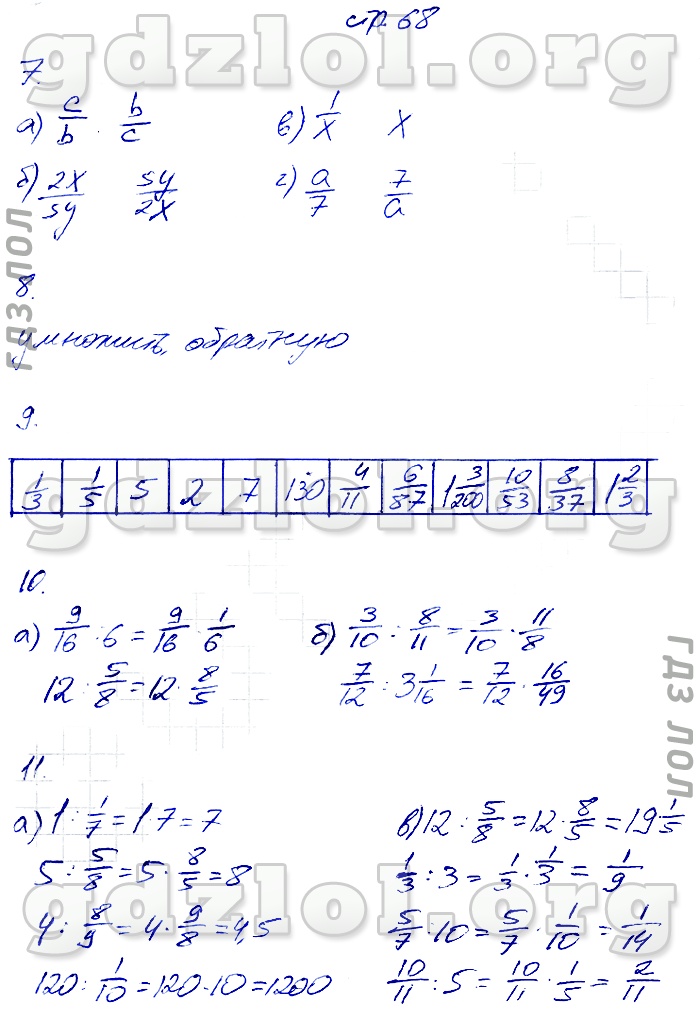 стр. 68
gdzlol.org
7.
а) c/b · b/c   в) 1/x   x
б) 2x/5y   5y/2x   г) a/7   7/a
гдз лол
8.
умножить, обратную
9.
1/3 | 1/5 | 5 | 2 | 7 | 130 | 4/11 | 6/87 | 1 3/200 | 10/53 | 8/37 | 1 2/3
gdzlol.org
10.
а) 9/16 : 6 = 9/16 · 1/6   б) 3/10 : 8/11 = 3/10 · 11/8
12 : 5/8 = 12 · 8/5   7/12 : 3 1/16 = 7/12 · 16/49
гдз лол
11.
а) 1 : 1/7 = 1 7 = 7   в) 12 : 5/8 = 12 · 8/5 = 19 1/5
5 : 5/8 = 5 · 8/5 = 8   1/3 : 3 = 1/3 · 1/3 = 1/9
4 : 8/9 = 4 · 9/8 = 4,5   5/7 : 10 = 5/7 · 1/10 = 1/14
gdzlol.org
120 : 1/10 = 120 · 10 = 1200   10/11 : 5 = 10/11 · 1/5 = 2/11